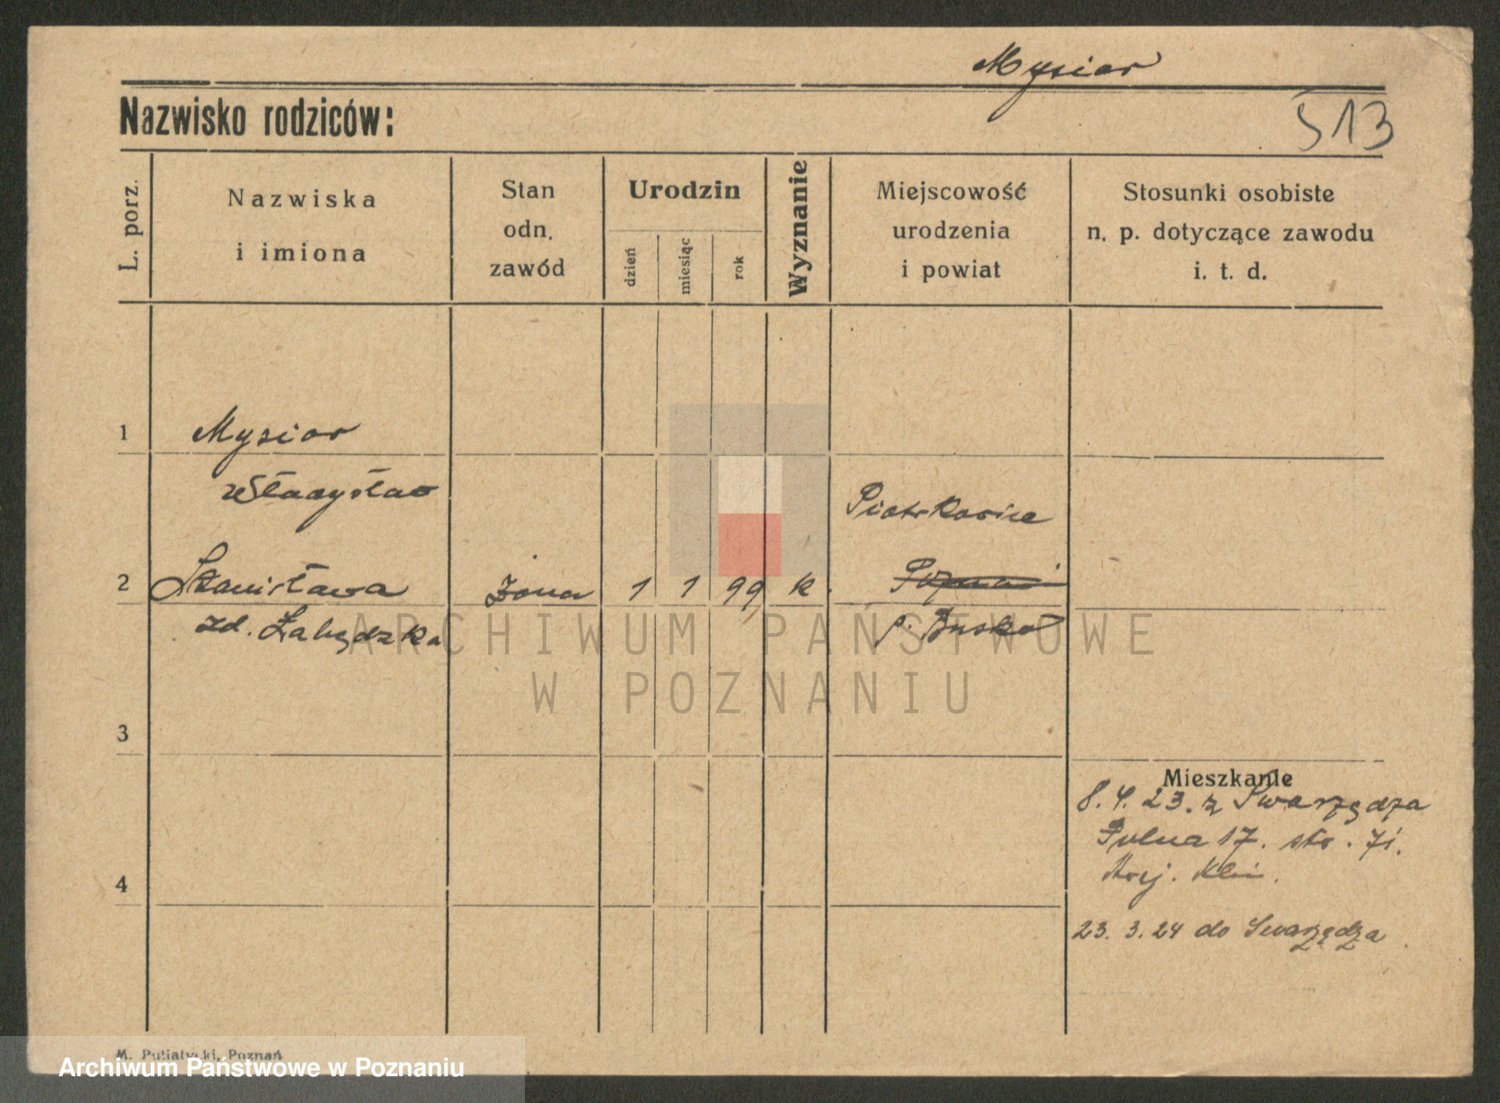 Mysior
Nazwisko rodziców:
513
L. porz.
Nazwiska
i imiona
Stan
odn.
zawód
Urodzin
dzień
miesiąc
rok
Wyznanie
Miejscowość
urodzenia
i powiat
Stosunki osobiste
n. p. dotyczące zawodu
i. t. d.
1 Mysior
Władysław
Piotrkowice
2 Stanisława żona 1 1 99 k. Poznań
zd. Łabędzka p. Busko
ARCHIWUM PAŃSTWOWE
W POZNANIU
3
Mieszkanie
8. 4. 23. z Swarzędza
Polna 17. sto. 71.
4
23. 3. 24 do Swarzędza
M. Putiatycki, Poznań
Archiwum Państwowe w Poznaniu